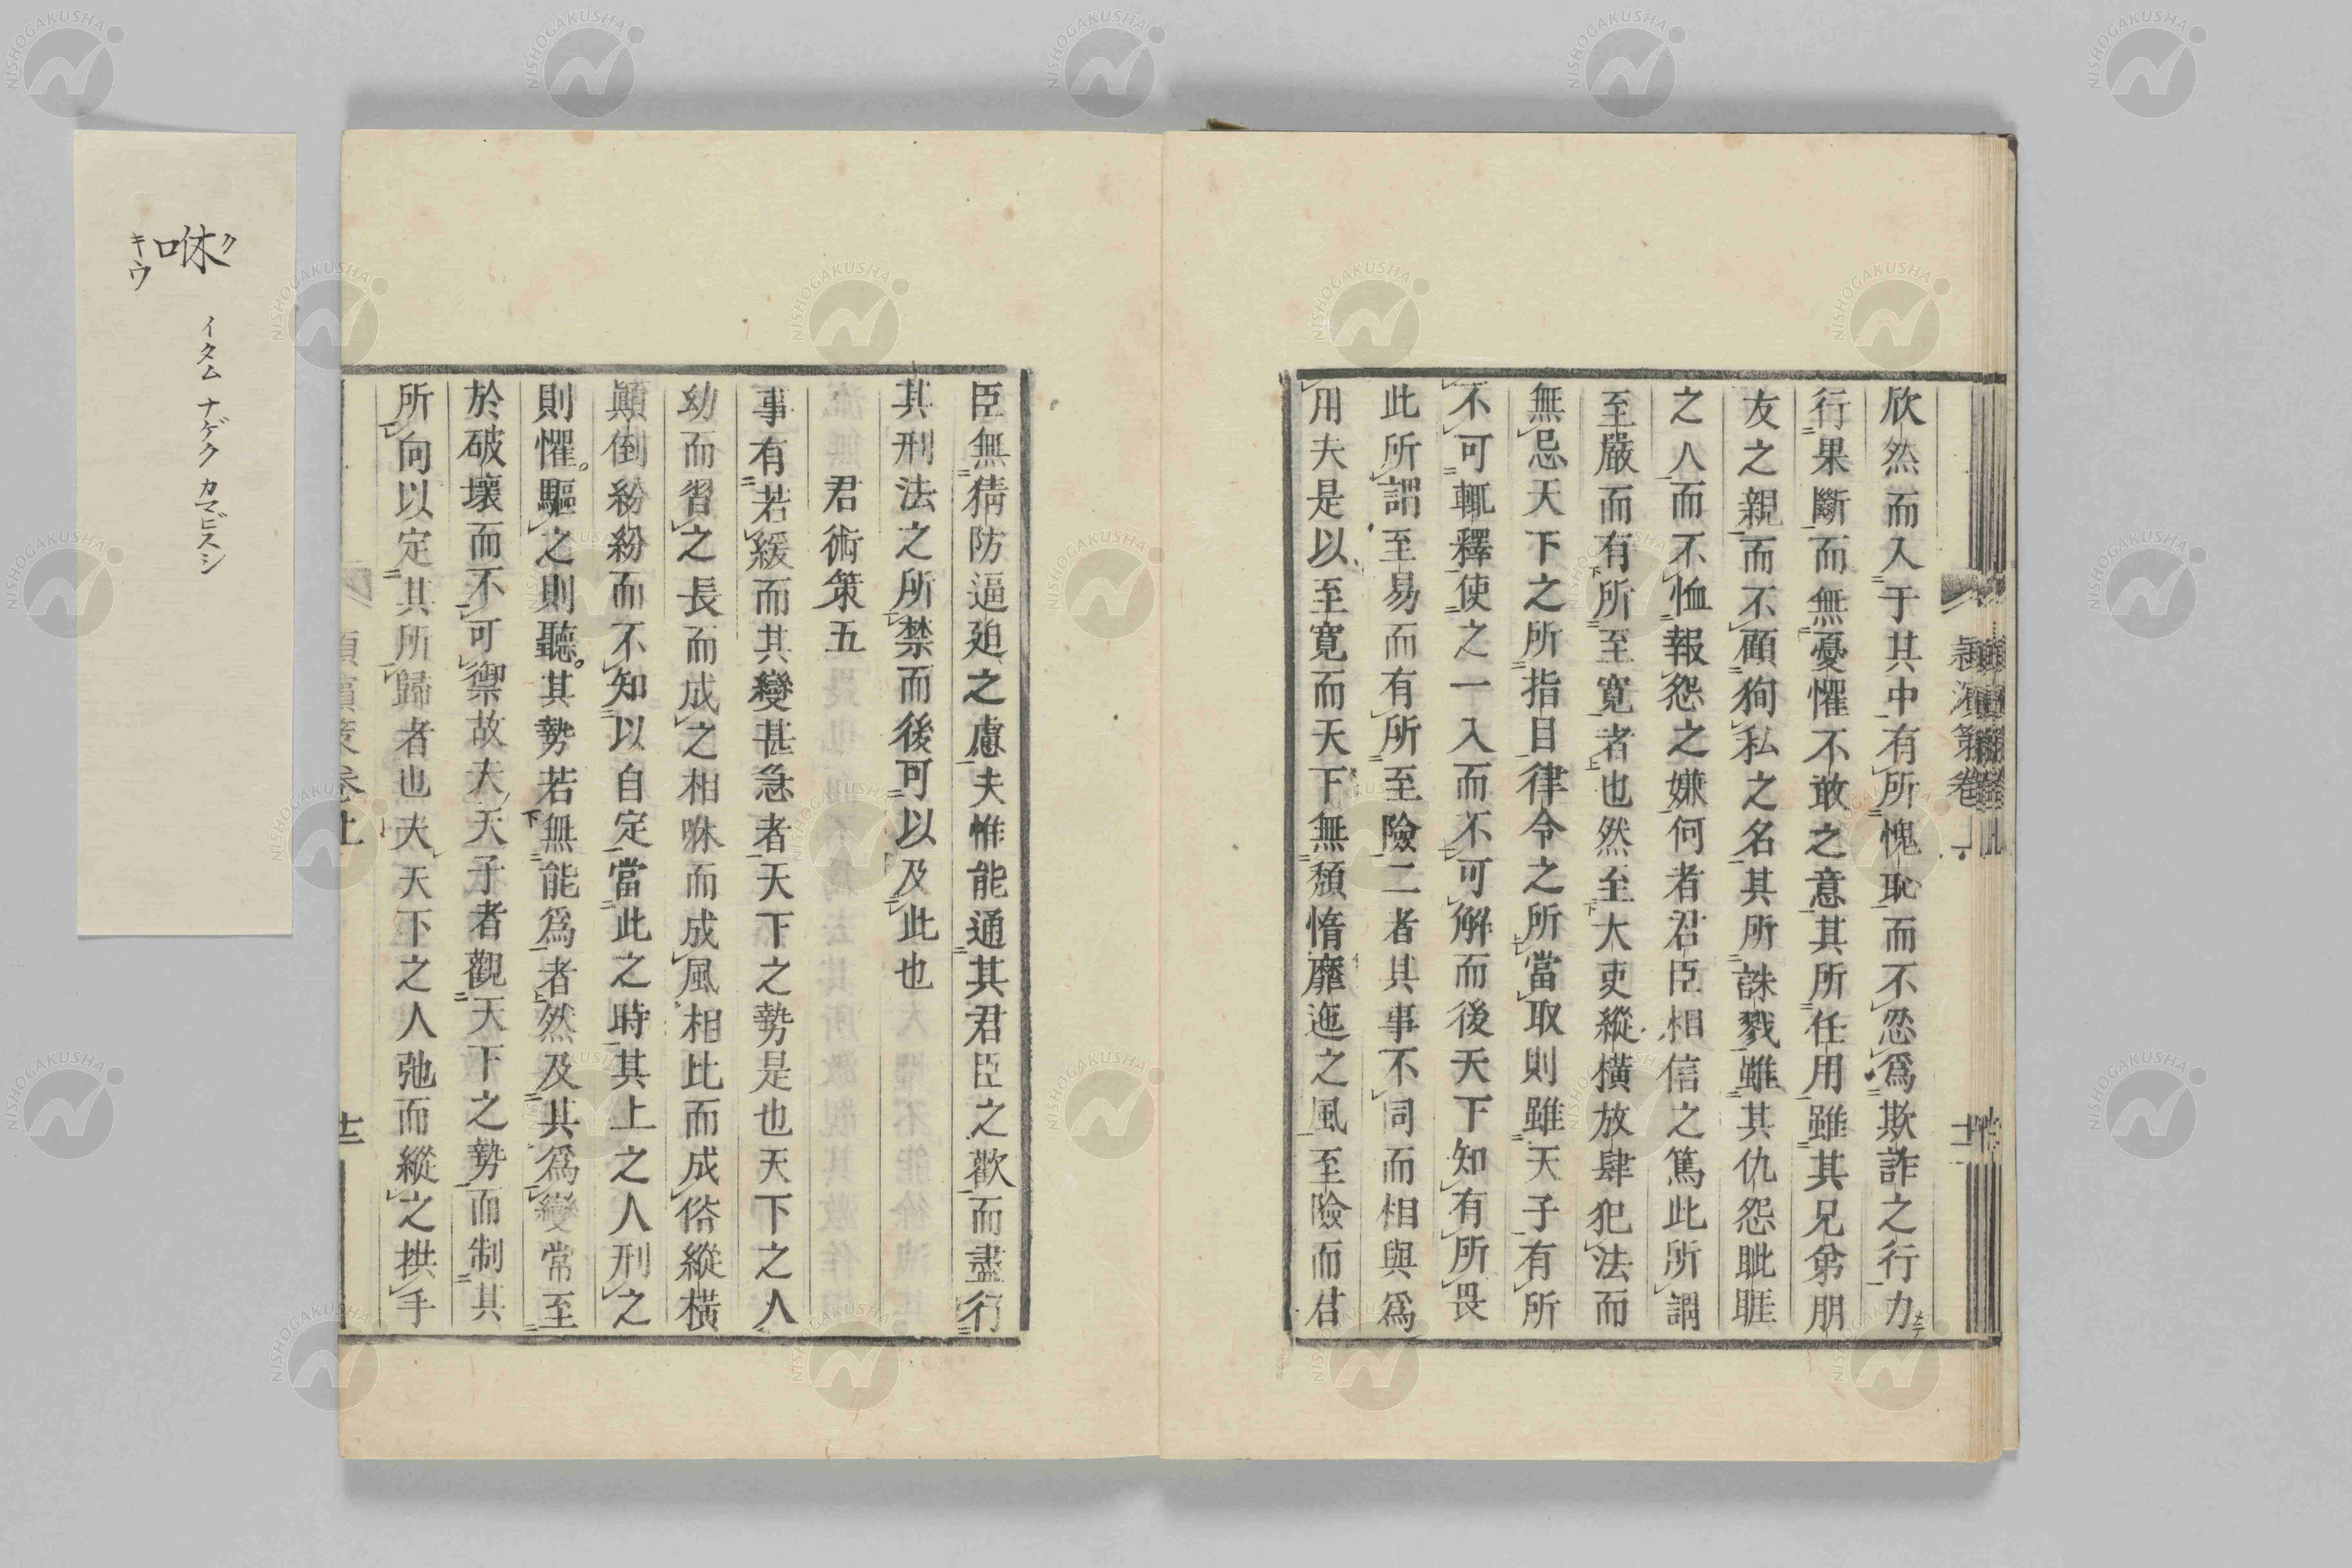 欣然而入于其中有所愧恥而不忍爲欺詐之行力
行果斷而無憂懼不敢之意其所任用雖其兄弟朋
友之親而不顧狥私之名其所誅戮雖其仇怨眦睚
之人而不恤報怨之嫌何者君臣相信之篤此所謂
至嚴而有所至寛者也然至大吏縱橫放肆犯法而
無忌天下之所指目律令之所當取則雖天子有所
不可輒釋使之一入而不可解而後天下知有所畏
此所謂至易而有所至險二者其事不同而相與爲
用夫是以至寛而天下無頽惰靡迤之風至險而君
臣無猜防逼廹之慮夫惟能通其君臣之歡而盡行
其刑法之所禁而後可以及此也
君術策五
事有若緩而其變甚急者天下之勢是也天下之人
幼而習之長而成之相咻而成風相比而成俗縱橫
顚倒紛紛而不知以自定當此之時其上之人刑之
則懼驅之則聽其勢若無能爲者然及其爲變常至
於破壞而不可禦故夫天子者觀天下之勢而制其
所向以定其所歸者也夫天下之人弛而縱之拱手
潁濱策卷上
十二
咻
ク
キウ
イタム ナゲク カマビスシ
NISHOGAKUSHA